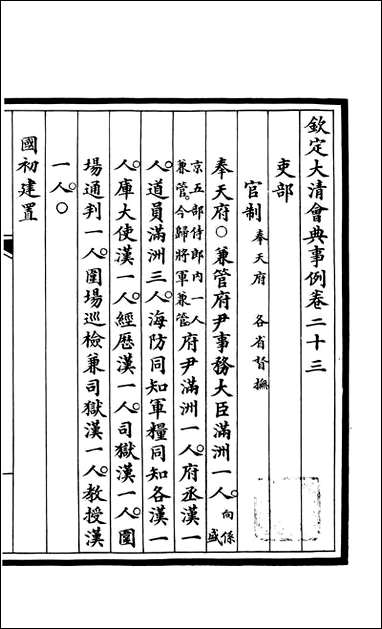 欽定大清會典事例卷二十三
吏部
官制 奉天府 各省督撫
奉天府○兼管府尹事務大臣滿洲一人。向係盛
京五部侍郎內一人兼管。今歸將軍兼管。府尹滿洲一人。府丞漢一
人。道員滿洲三人。海防同知軍糧同知各漢一
人。庫大使漢一人。經歷漢一人。司獄漢一人。圍
場通判一人。圍場巡檢兼司獄漢一人。教授漢
一人。○
國初建置